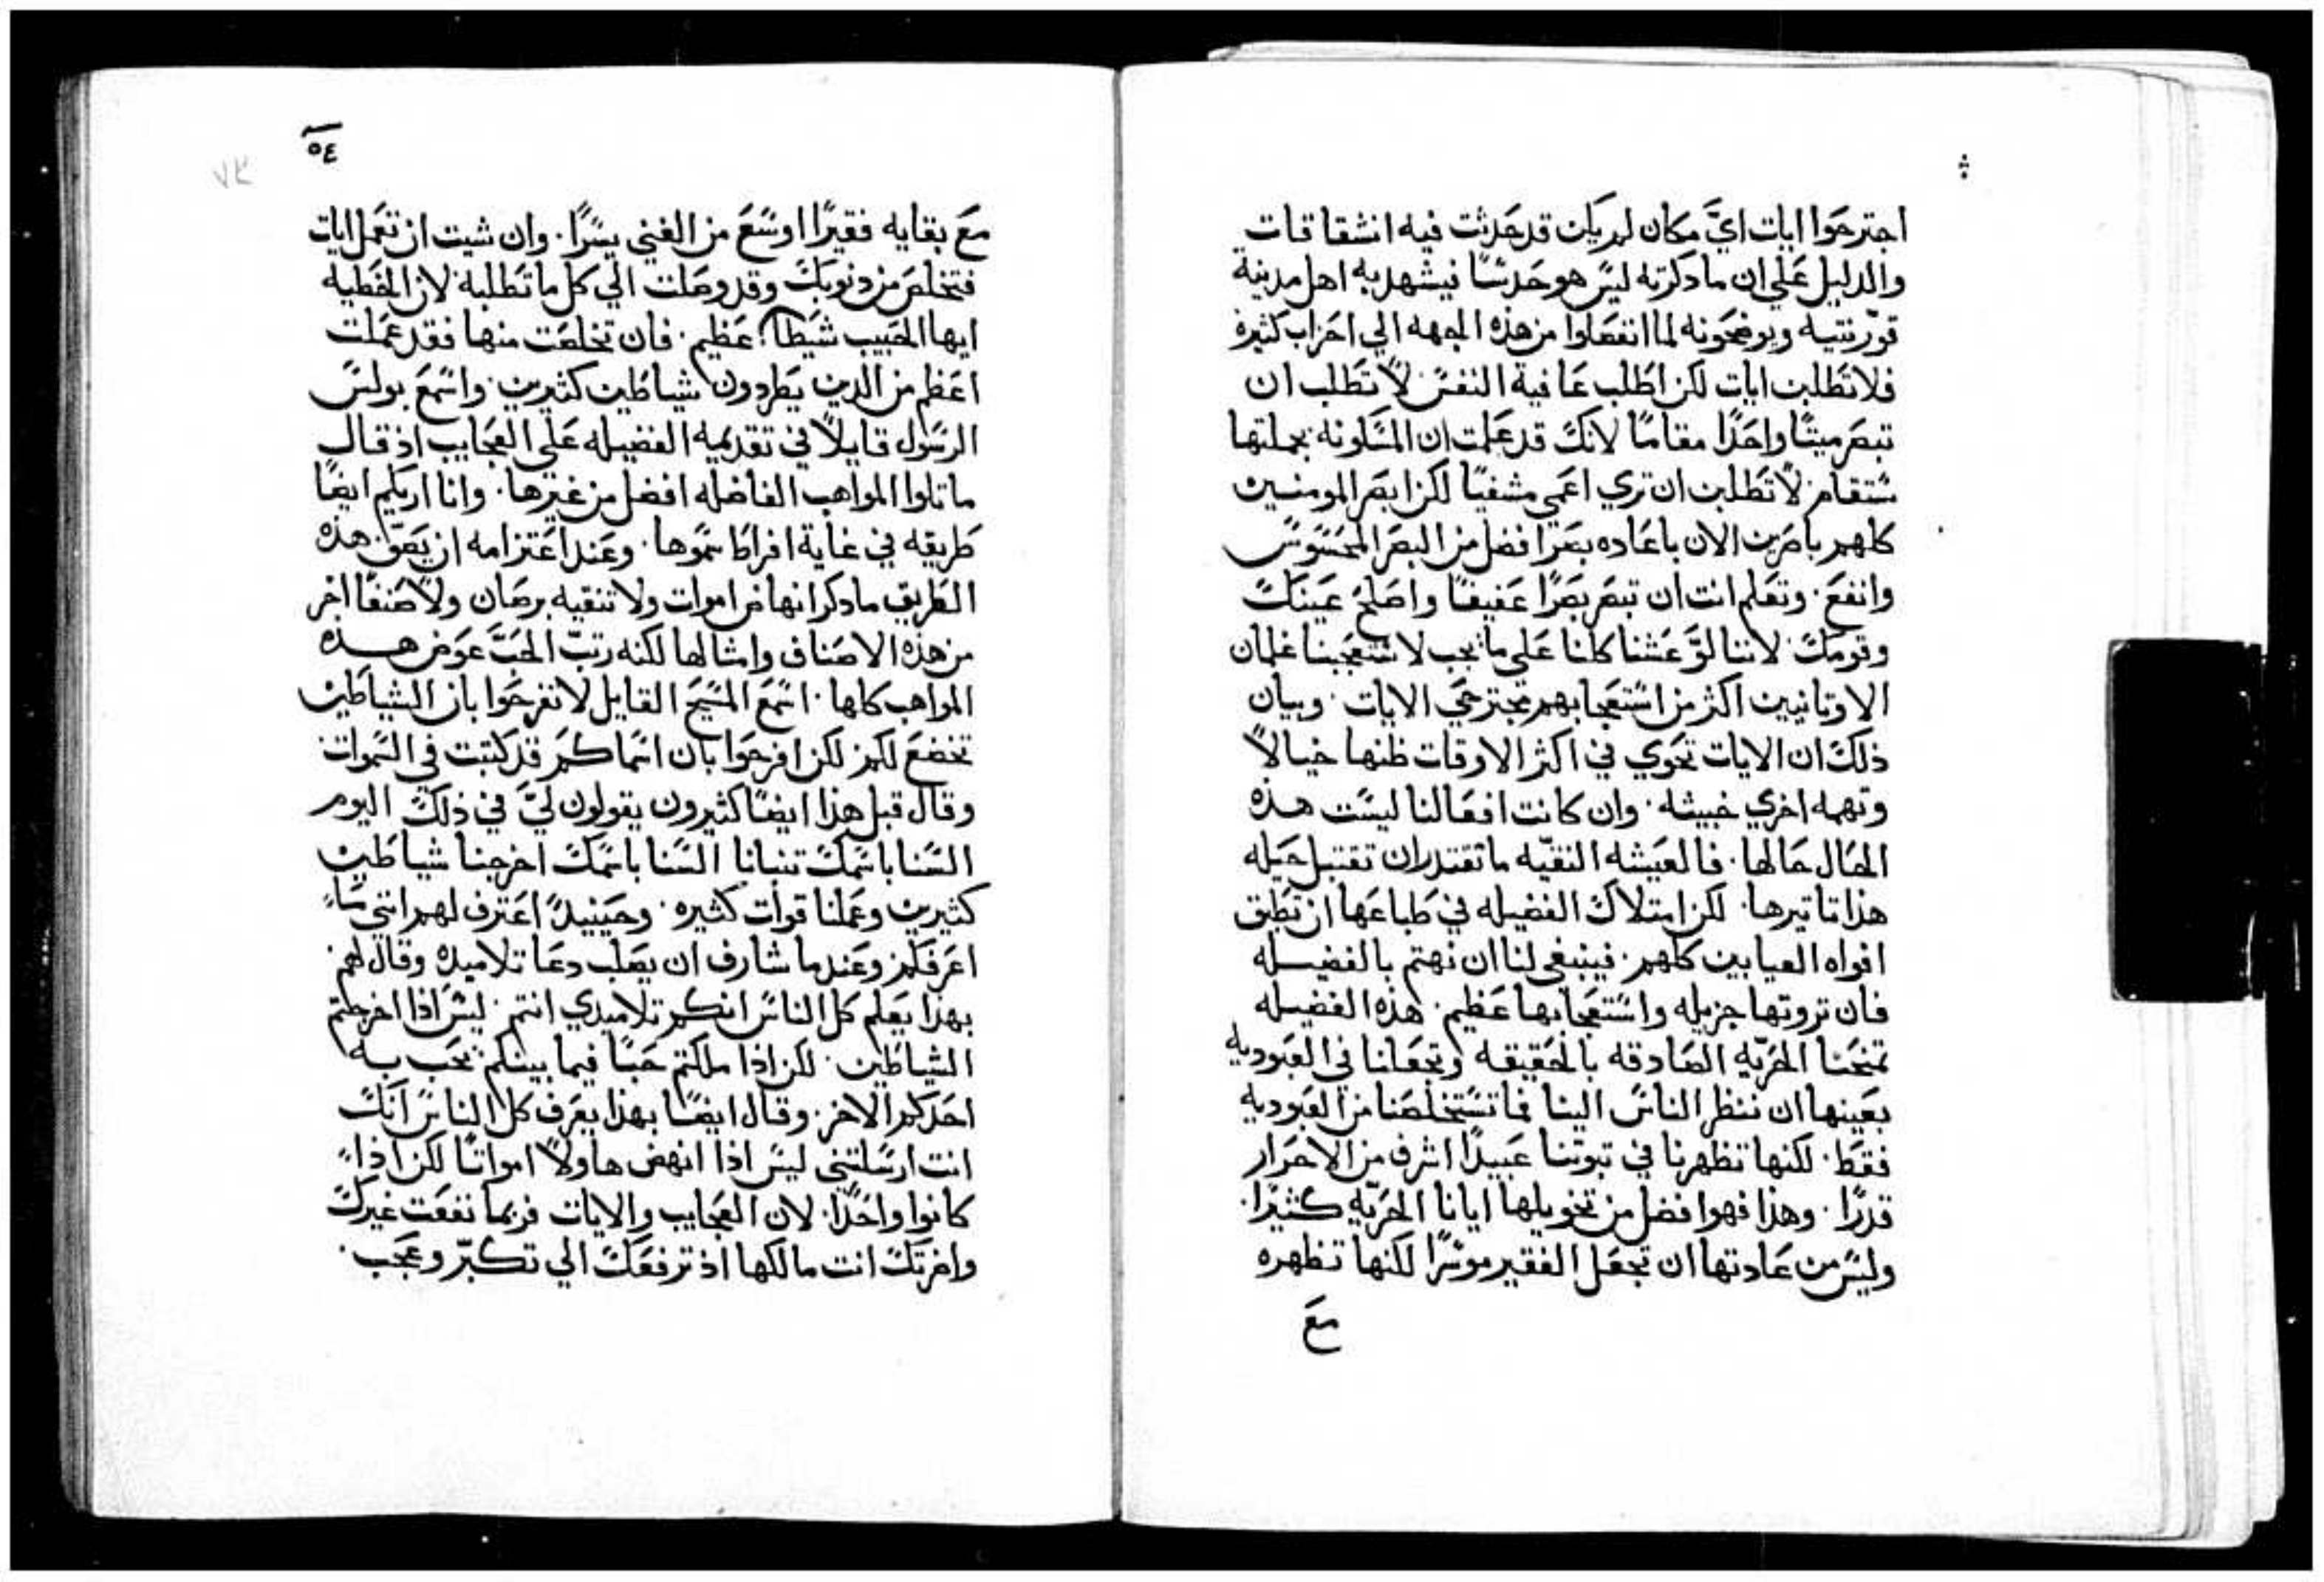 اجترحوا ايات ايَّ مكان لم يكن قد حدثت فيه انشقاقات
والدليل علي ان ما ذكرته ليس هو حدسًا فيشهد به اهل مدينة
قورنتيه ويوضحونه لما انفصلوا من هذه الجهه الي احزاب كثيرة
فلا تطلبن ايات لكن اطلب عافية النفس لا تطلب ان
تبصر ميتًا واحدًا مقامًا لانك قد علمت ان المسكونه بجملتها
ستقام لا تطلبن ان تري اعمي مشفيًا لكن ابصر المومنين
كلهم باصرين الان باعاده بصر افضل من البصر المحسوس
وانفع. وتعلم انت ان تبصر بصرًا عفيفًا واصلح عينك
وقومك لاننا لو عشنا كلنا علي ما يجب لاستعجبنا غلمان
الاوتانيين اكثر من استعجابهم بمجترحي الايات. وبيان
ذلك ان الايات تحوي في اكثر الاوقات ظنها خيالاً
وتهمه اخري خبيثه. وان كانت افعالنا ليست هذه
الحال حالها. فالعيشه النقيّه ما تقتدر ان تقتبل حيله
هذا تاتيرها. لكن امتلاك الفضيله في طباعها ان تطبق
افواه العيابين كلهم. فينبغي لنا ان نهتم بالفضيله
فان تروتها جزيله واستعجابها عظيم. هذه الفضيله
تمنحنا الحريّه الصادقه بالحقيقه وتجعلنا في العبوديه
بعينها ان ننظر الناس الينا فما تستخلصنا من العبوديه
فقط. لكنها تظهرنا في تبوتنا عبيدًا اشرف من الاحرار
قدرًا. وهذا فهو افضل من تخويلها ايانا الحريّه كثيرًا.
وليس من عادتها ان تجعل الفقير موسرًا لكنها تظهره
مع
٥٤
٧٣
مع بقايه فقيرًا اوسع من الغني يسرًا. وان شيت ان تعمل ايات
فتخلص من ذنوبك وقد وصلت الي كل ما تطلبه لان الخطيه
ايها الحبيب شيطانٌ عظيم. فان تخلصت منها فقد عملت
اعظم من الدين يطردون شياطين كثيرين. واسمع بولس
الرسول قايلاً في تقديمه الفضيله علي العجايب اذ قال
ماتلوا المواهب الفاضله افضل من غيرها. وانا اريكم ايضًا
طريقه في غاية افراط سموها. وعند اعتزامه ان يصف هذه
الطريق ما دكر انهاض اموات ولا تنقيه برصان ولا صنفًا اخر
من هذه الاصناف وامثالها لكنه رتبّ الحبَّ عوض هذه
المواهب كلها. اسمع المسيح القايل لا تفرحوا بان الشياطين
تخضع لكم لكن افرحوا بان اسماكم قد كتبت في السموات
وقال قبل هذا ايضًا كثيرون يقولون ليَّ في ذلك اليوم
السنا باسمك تنبانا السنا باسمك اخرجنا شياطين
كثيرين وعملنا قوات كثيره. وحينيدً اعترف لهم انني ما
اعرفكم وعندما شارف ان يصلب دعا تلاميذه وقال لهم
بهذا يعلم كل الناس انكم تلاميدي انتم. ليس اذا اخرجتم
الشياطين. لكن اذا ملكتم حبًا فيما بينكم يحب به
احدكم الاخر. وقال ايضًا بهذا يعرف كل الناس انك
انت ارسلتني ليس اذا انهض هاولا امواتًا لكن اذا
كانوا واحدًا. لان العجايب والايات فربما نفعت غيرك
واضرتك انت مالكها اذ ترفعك الي تكبّر وعجب.